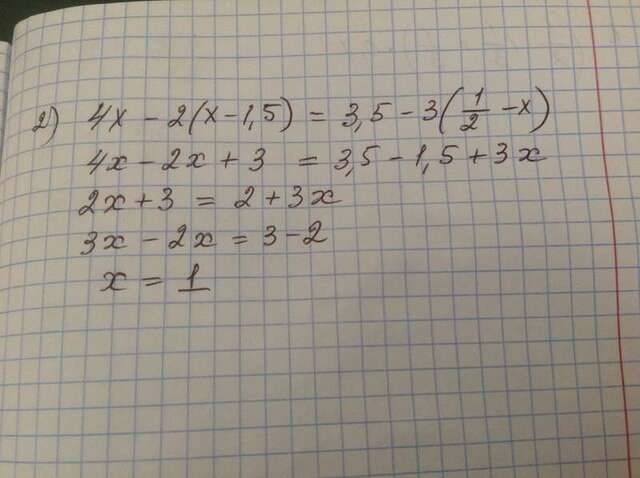 2) 4x - 2(x - 1,5) = 3,5 - 3(1/2 - x)
4x - 2x + 3 = 3,5 - 1,5 + 3x
2x + 3 = 2 + 3x
3x - 2x = 3 - 2
x = 1